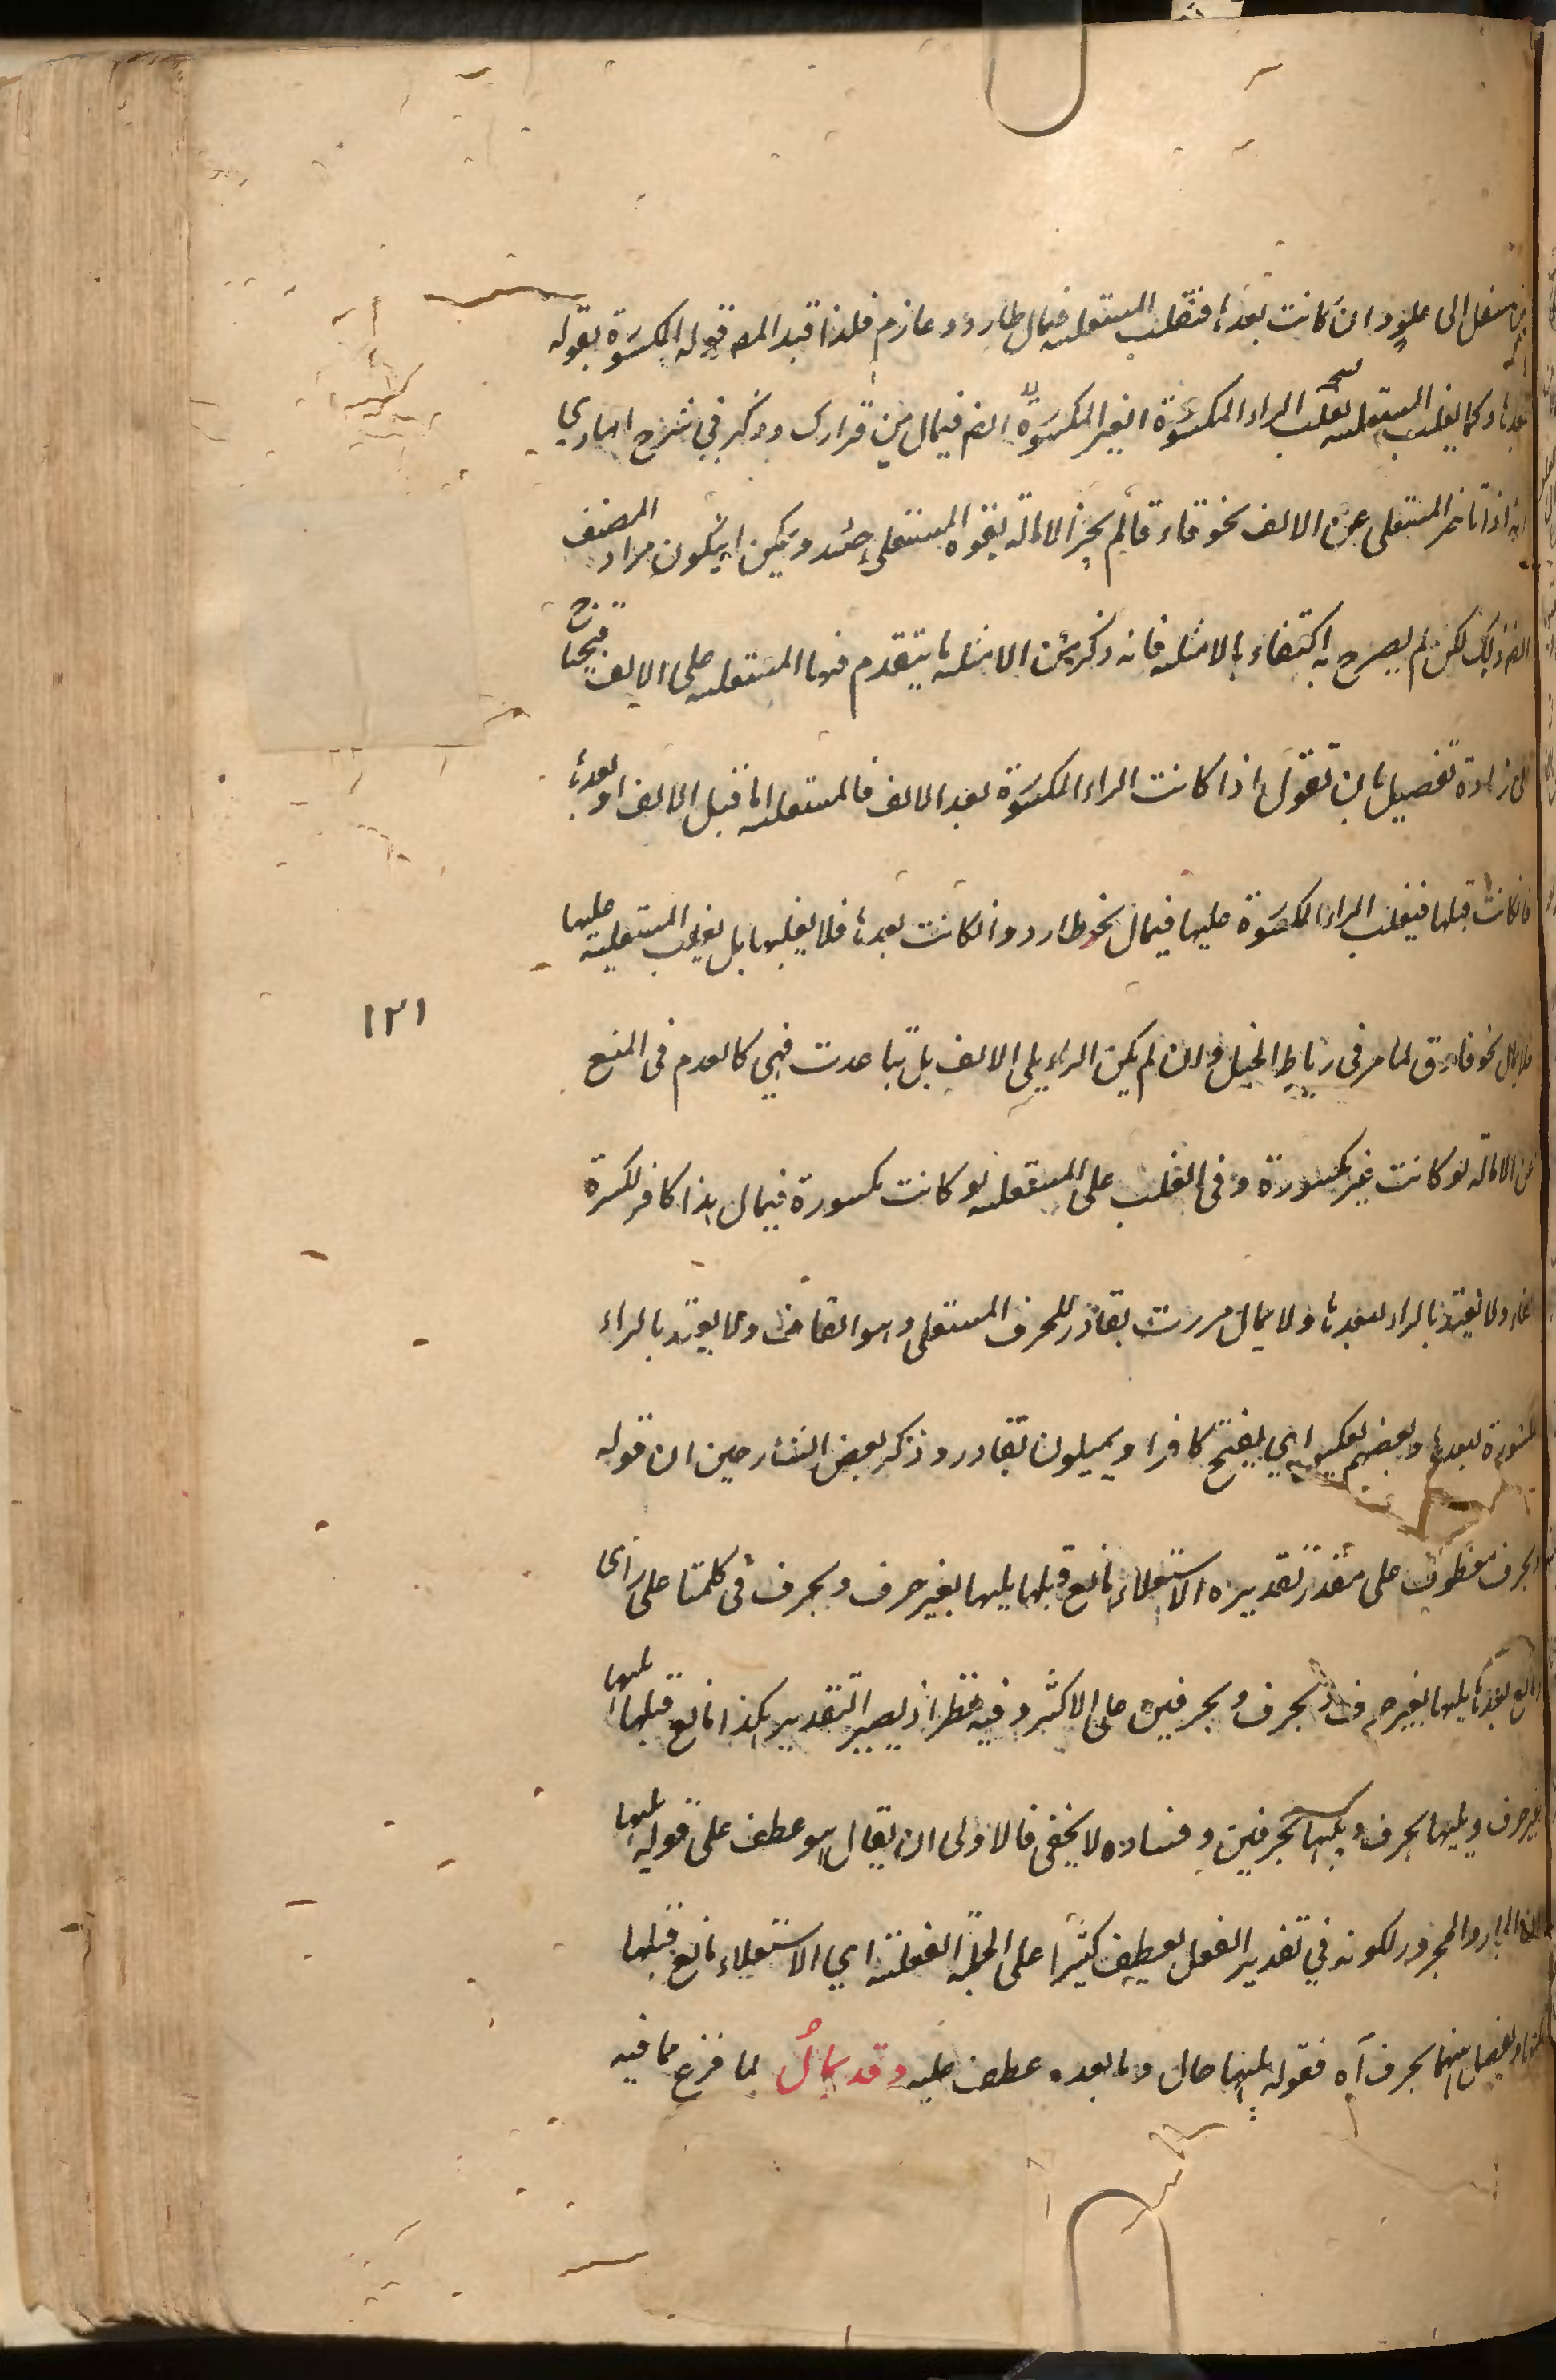 من سفل الى علو وان كانت بعدها فتغلب المستعلية فيمال طارد وغارم فلذا قيد المصـ قوله المكسورة بقوله
بعدها وكما يغلب المستعلية تغلب الراء المكسورة الغير المكسورة ايضـ فيمال من قرارك وذكر في شرح الهادي
انه اذا تأخر المستعلي عن الالف نحو فارق لم يجز الامالة لقوة المستعلي حينئذ ويمكن ان يكون مراد المصنف
ايضـ ذلك لكن لم يصرح به اكتفاء بالامثلة فانه ذكر من الامثلة ما يتقدم فيها المستعلية على الالف فيحتاج
الى زيادة تفصيل بان تقول اذا كانت الراء المكسورة بعد الالف فالمستعلية اما قبل الالف او بعدها
فان كانت قبلها فيغلب الراء المكسورة عليها فيمال نحو طارد وان كانت بعدها فلا يغلبها بل يغلب المستعلية عليها
فلا يمال نحو فارق لما مر في رباط الخيل وان لم يكن الراء يلي الالف بل تباعدت فهي كالعدم في المنع
عن الامالة لو كانت غير مكسورة وفي الغلب على المستعلية لو كانت مكسورة فيمال هذا كافر لكسرة
الفاء ولا يعتد بالراء لبعدها ولا يمال مررت بقادر للحرف المستعلي وهو القاف ولا يعتد بالراء
المكسورة لبعدها وبعضهم يعكس اي يفتح كافرا ويميلون بقادر وذكر بعض الشارحين ان قوله
وبحرف معطوف على مقدر تقديره الاستعلاء مانع قبلها يليها بغير حرف وبحرف في كلمتها على رأي
ومانع بعدها يليها بغير حرف وبحرف وبحرفين على الاكثر وفيه نظر اذ يصير التقدير هكذا مانع قبلها يليها
بغير حرف ويليها بحرف ويليها بحرفين وفساده لا يخفى فالاولى ان يقال هو عطف على قوله يليها
لان الجار والمجرور لكونه في تقدير الفعل يعطف كثيرا على الجملة الفعلية اي الاستعلاء مانع قبلها
ويفصل بينهما بحرف آه فقوله يليها حال وما بعده عطف عليه وقد يمال لما فرغ مما فيه
١٢١